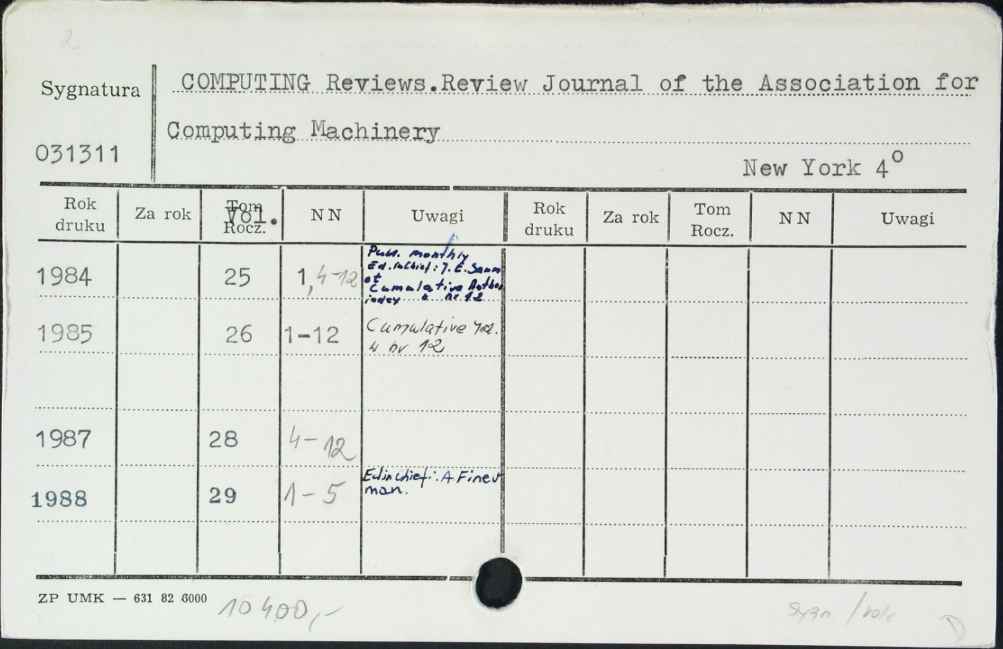 2
Sygnatura
COMPUTING Reviews.Review Journal of the Association for
Computing Machinery
031311
New York 4°
Rok druku Za rok Tom Vol. Rocz. NN Uwagi Rok druku Za rok Tom Rocz. NN Uwagi
1984 25 1,4-12 Publ. monthly
Ed.inChief: J.E.
Cumulative Author
index w nr 12
1985 26 1-12 Cumulative
w nr 12
1987 28 4-12
1988 29 1-5 Ed.in chief: A Finer
man.
ZP UMK — 631 82 6000
10400,-